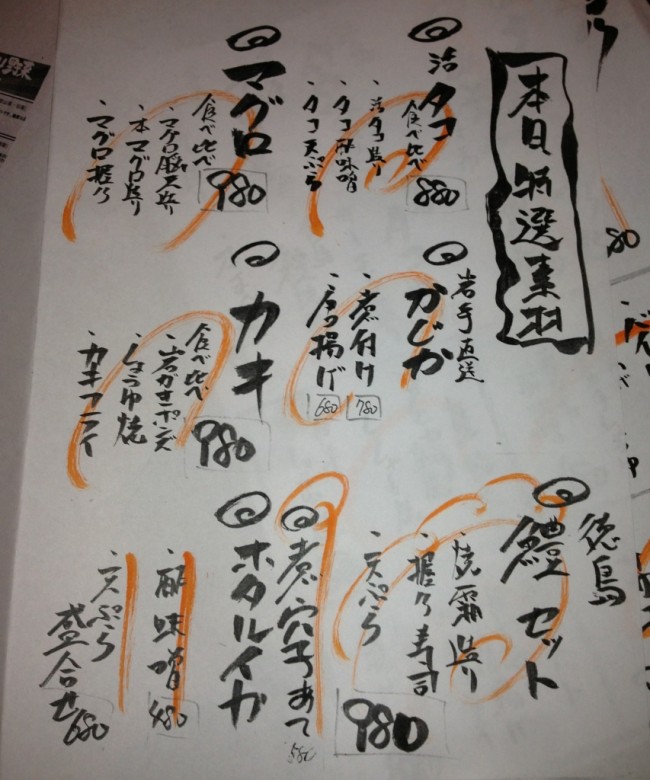 本日特選素材
活タコ
食べ比べ
880
・活タコ造り
・タコ酢味噌
・タコ天ぷら
マグロ
食べ比べ
980
・マグロ脳天造り
・本マグロ造り
・マグロ握り
岩手直送
かじか
・煮付け
780
・唐揚げ
680
カキ
食べ比べ
980
・岩がきポンズ
・しょうゆ焼
・カキフライ
徳島
鱧セット
・焼霜造り
・握り寿司
・天ぷら
980
煮穴子あて
580
ホタルイカ
・酢味噌
480
・天ぷら
盛合せ
680